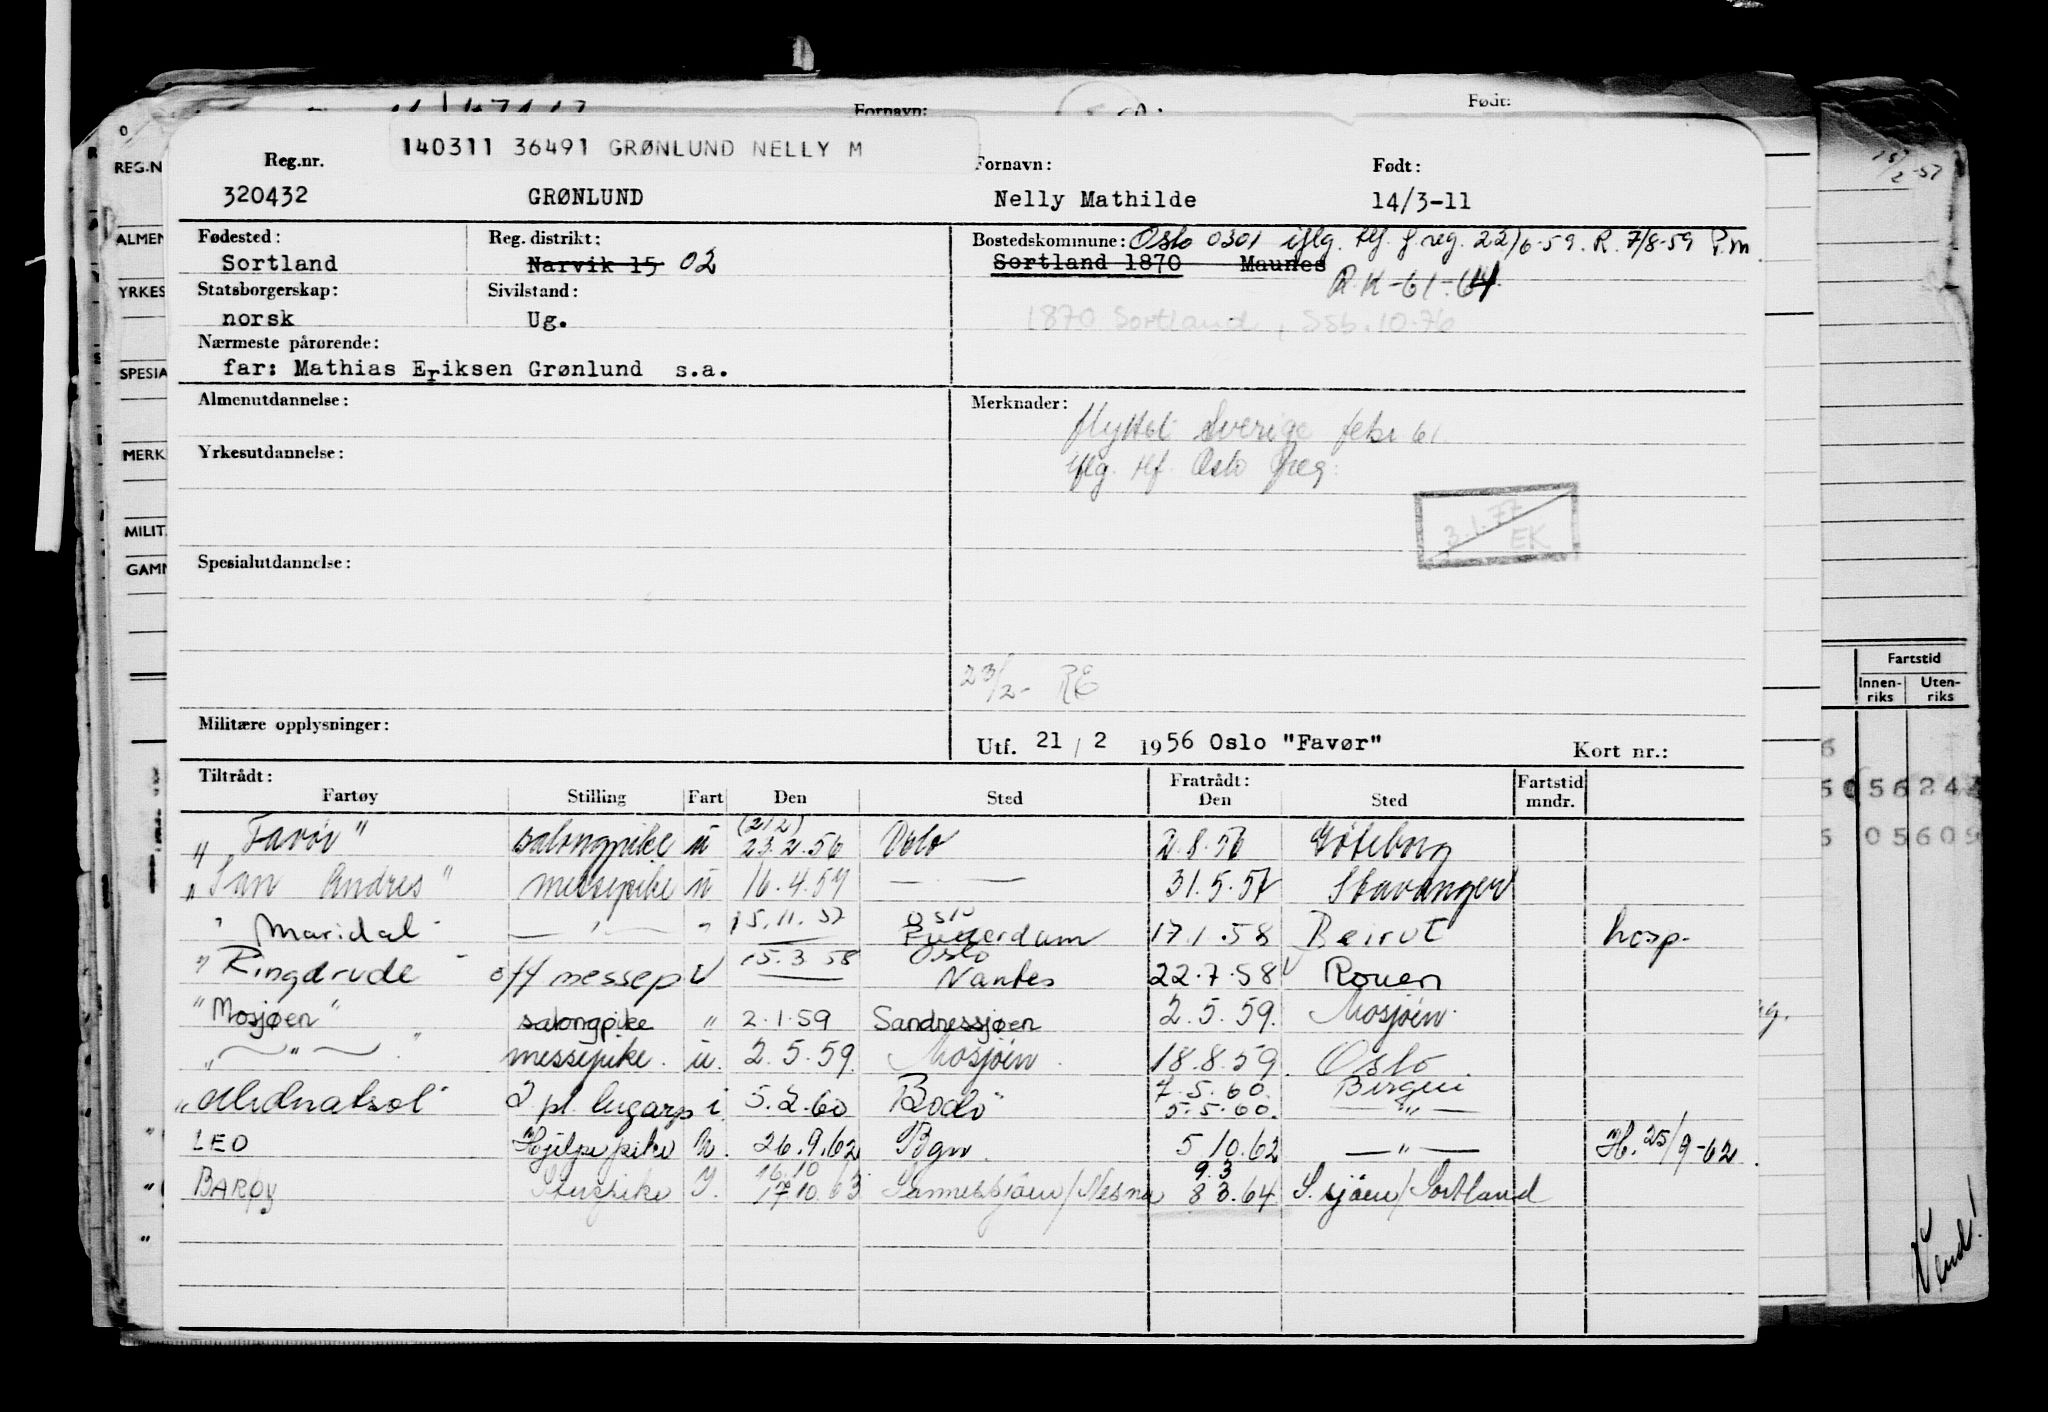 Fornavn: Født:
140311 36491 GRØNLUND NELLY M
Reg.nr. Fornavn: Født:
320432 GRØNLUND Nelly Mathilde 14/3-11
Fødested: Reg. distrikt: Bostedskommune: Oslo 0301 iflg. Hf. f.reg. 22/6-59. R. 7/8-59 P.m
Sortland Narvik 15 02 Sortland 1870 Maunes
Statsborgerskap: Sivilstand: R.K-61-64
norsk Ug. 1870 Sortland, SSb. 10.76
Nærmeste pårørende:
far: Mathias Eriksen Grønlund s.a.
Almenutdannelse: Merknader:
flyttet Sverige febr 61.
Yrkesutdannelse: iflg. Hf. Oslo freg.
3.1.77
EK
Spesialutdannelse:
23/2- RE
Militære opplysninger: Utf. 21/2 1956 Oslo "Favør" Kort nr.:
Tiltrådt: Fratrådt: Fartstid
Fartøy Stilling Fart Den Sted Den Sted mndr.
(21/2)
"Favør" salongpike u 23.2.56 Oslo 2.8.56 Göteborg
"San Andres" messepike u 16.4.57 — . — 31.5.57 Stavanger
15.11.57 Oslo
" Maridal - — " — " — Rotterdam 17.1.58 Beirut hosp.
15.3.58 Oslo
" Ringdrude " off messep U — Nantes 22.7.58 Rouen
"Mosjøen" salongpike " 2.1.59 Sandnessjøen 2.5.59. Mosjöen.
" — " — " messepike. u. 2.5.59. Mosjöen. 18.8.59. Oslo.
7.5.60. Bergen
"Midnatsol" 2 pl. lugarp i 5.2.60 Bodö 5.5.60. — " —
LEO Hjelpepike U. 26.9.62 Bgn. 5.10.62 — " — H. 25/9-62.
16.10 9.3
BARØY I. 17.10.63 Sannessjöen/Nesna 8.3.64 S.sjöen/Sortland
REG.N
ALMEN
YRKES
SPESIA
MERK
MILIT.
GAMM
Fartstid
Innen-riks Uten-riks
Vend!